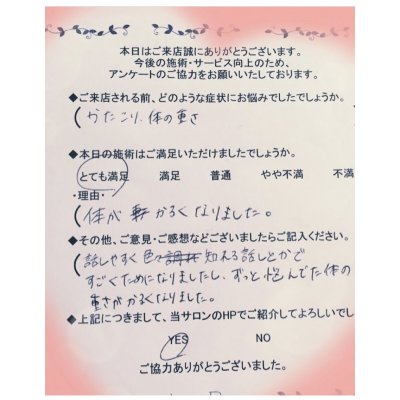 本日はご来店誠にありがとうございます。
今後の施術・サービス向上のため、
アンケートのご協力をお願いいたしております。
◆ご来店される前、どのような症状にお悩みでしたでしょうか。
(かたこり、体の重さ
◆本日の施術はご満足いただけましたでしょうか。
とても満足 満足 普通 やや不満 不満
・理由・
(体が かるくなりました。
◆その他、ご意見・ご感想などございましたらご記入ください。
(話しやすく色々 知れる話しとかで
すごくためになりましたし、ずっと悩んでた体の
重さがかるくなりました。
◆上記につきまして、当サロンのHPでご紹介してよろしいでし
YES NO
ご協力ありがとうございました。